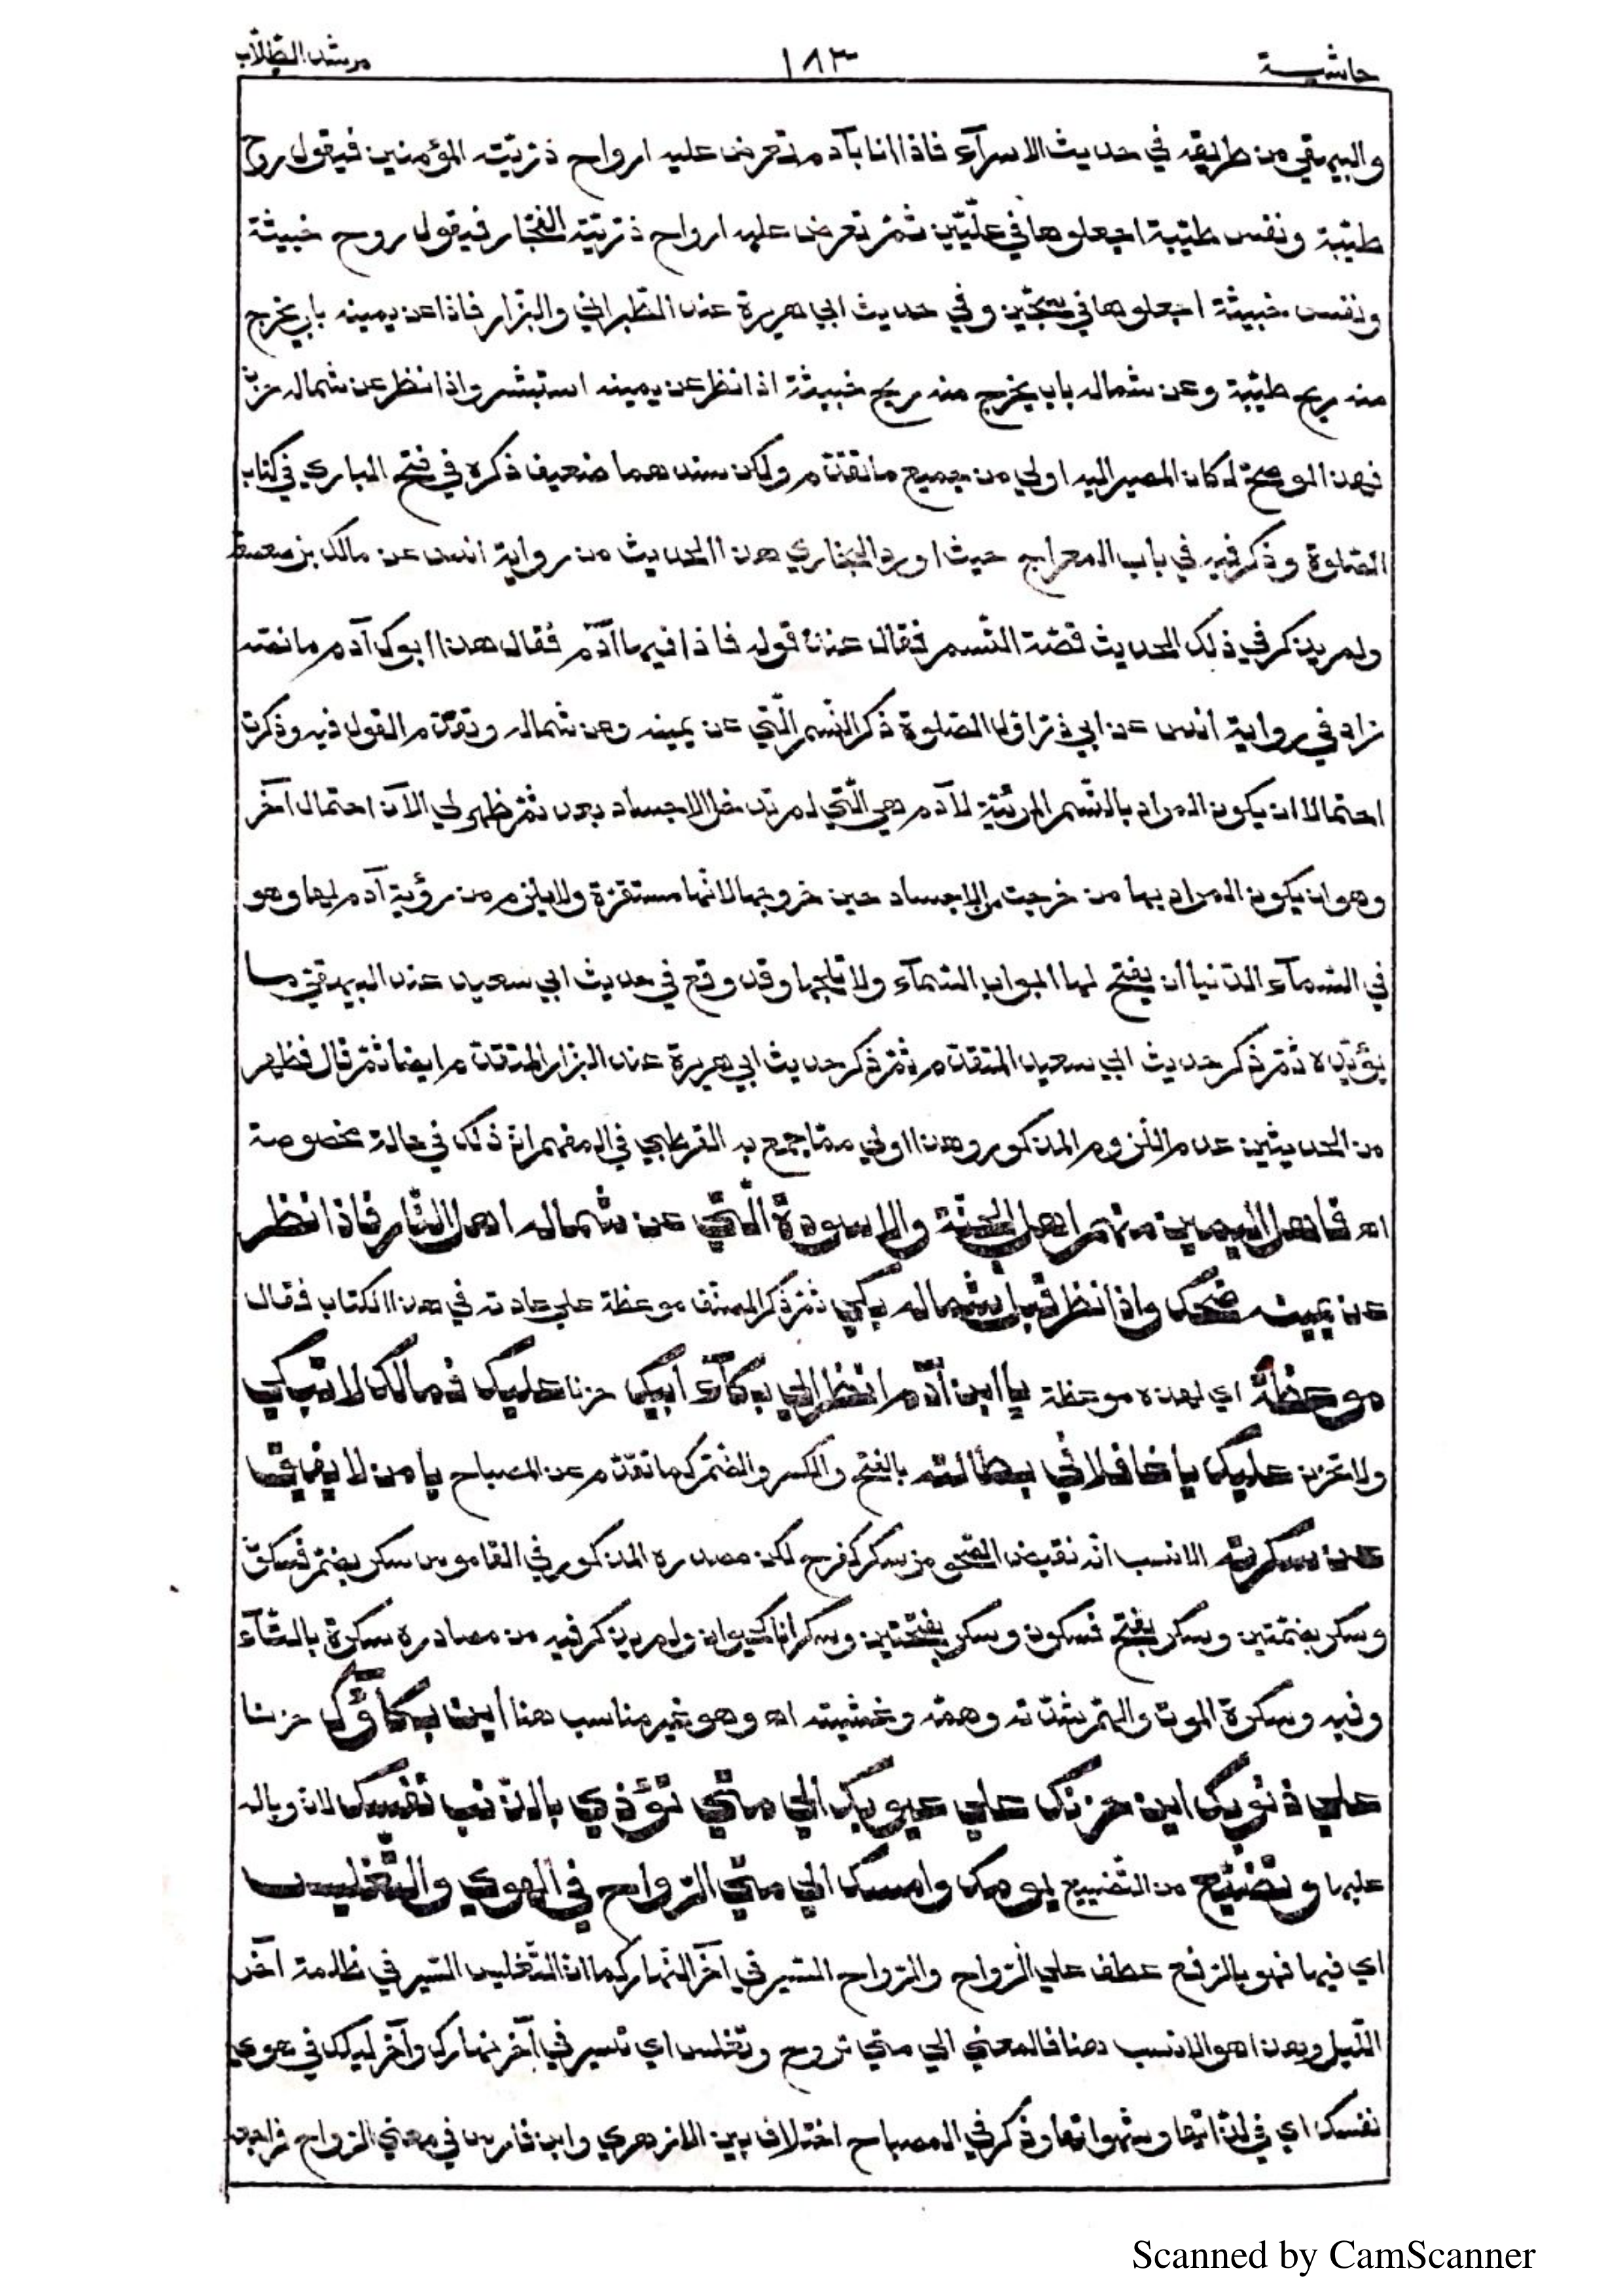 حاشية ١٨٣ مرشد الطّلّاب
والبيهقي من طريقه في حديث الاسرآء فاذا انا بآدم تعرض عليه ارواح ذرّيّته المؤمنين فيقول روح
طيّبة ونفس طيّبة اجعلوها في علّيّين ثمّ تعرض عليه ارواح ذرّيّته الفجّار فيقول روح خبيثة
ونفس خبيثة اجعلوها في سجّين وفي حديث ابي هريرة عند الطّبراني والبزار فاذا عن يمينه باب يخرج
منه ريح طيّبة وعن شماله باب يخرج منه ريح خبيثة اذا نظر عن يمينه استبشر واذا نظر عن شماله حزن
فهذا لو صحّ لكان المصير اليه اولي من جميع ما تقدّم ولكن سندهما ضعيف ذكره في فتح الباري في كتاب
الصّلوة وذكر فيه في باب المعراج حيث اورد البخاري هذا الحديث من رواية انس عن مالك بن صعصعة
ولم يذكر في ذلك الحديث قصّة النّسم فقال عند قوله فاذا فيها آدم فقال هذا ابوك آدم ما نصّه
زاد في رواية انس عن ابي ذرّ اوّل الصّلوة ذكر النّسم الّتي عن يمينه وعن شماله وتقدّم القول فيه وذكرت
احتمالا ان يكون المراد بالنّسم المرئيّة لآدم هي الّتي لم تدخل الاجساد بعد ثمّ ظهر لي الآن احتمال آخر
وهو ان يكون المراد بها من خرجت من الاجساد حين خروجها لانّها مستقرّة ولا يلزم من رؤية آدم لها وهو
في السّمآء الدّنيا ان يفتح لها ابواب السّمآء ولا تلجها وقد وقع في حديث ابي سعيد عند البيهقيّ ما
يؤيّده ثمّ ذكر حديث ابي سعيد المتقدّم ثمّ ذكر حديث ابي هريرة عند البزار المتقدّم ايضا ثمّ قال فظهر
من الحديثين عدم اللّزوم المذكور وهذا اولي ممّا جمع به القرطبي في المفهم انّ ذلك في حالة مخصوصة
اه فاهل اليمين منهم اهل الجنّة والاسودة الّتي عن شماله اهل النّار فاذا نظر
عن يمينه ضحك واذا نظر قبل شماله بكي ثمّ ذكر المصنّف موعظة علي عادته في هذا الكتاب فقال
موعظة اي لهذه موعظة يا ابن آدم انظر الي بكآء ابيك حزنا عليك فمالك لا تبكي
ولا تحزن عليك يا غافلا في بطالته بالفتح والكسر والضّمّ كما تقدّم عن المصباح يا من لا يفيق
من سكرته الانسب انّه نقيض الصّحو من سكر كفرح لكن مصدره المذكور في القاموس سكر بضمّ فسكون
وسكر بضمّتين وسكر بفتح فسكون وسكر بفتحتين وسكرانا كحيوان ولم يذكر فيه من مصادره سكرة بالتّآء
وفيه وسكرة الموت والهمّ شدّته وهمّه وغشيته اه وهو غير مناسب هنا اين بكاؤك حزنا
علي ذنوبك اين حزنك علي عيوبك الي متي تؤذي بالذّنب نفسك لانّ وباله
عليها وتضيّع من التّضييع يومك وامسك الي متي الرّواح في الهوي والتّغليس
اي فيها فهو بالرّفع عطف علي الرّواح والرّواح السّير في آخر النّهار كما انّ التّغليس السّير في ظلمة آخر
اللّيل وهذا هو الانسب هنا فالمعني الي متي تروح وتغلس اي تسير في آخر نهارك وآخر ليلك في هوي
نفسك اي في لذّاتها وشهواتها وذكر في المصباح اختلاف بين الازهري وابن فارس في معني الرّواح فراجعه
Scanned by CamScanner